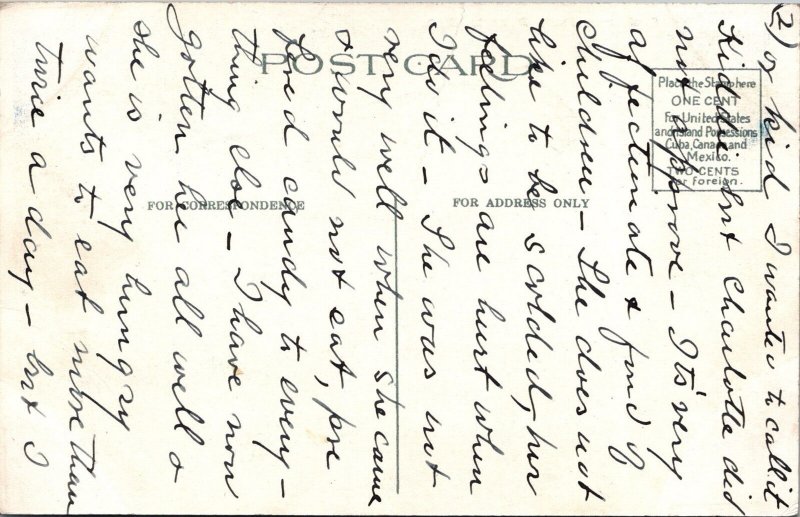 POST CARD
Place the Stamp here
ONE CENT
For United States
and Island Possessions
Cuba, Canada and
Mexico.
TWO CENTS
for foreign.
FOR CORRESPONDENCE
FOR ADDRESS ONLY
2) or kid I wanted to call it
Kiddie. but Charlotte did
not approve - Its' very
affectionate & fond of
children - She does not
like to be scolded, her
feelings are hurt when
I do it - She was not
very well when she came
& would not eat, pre
fered candy to every-
thing else - I have now
gotten her all well &
she is very hungry
wants to eat more than
twice a day - but I